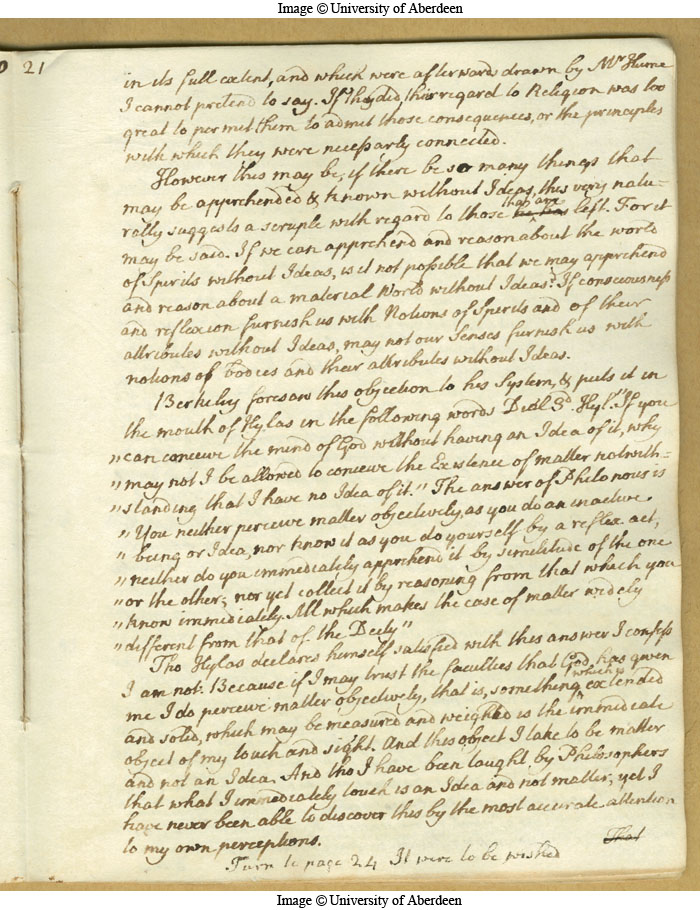 Image © University of Aberdeen
21
in its full extent, and which were afterwards drawn by Mr Hume
I cannot pretend to say. If they did, their regard to Religion was too
great to permit them to admit those consequences, or the principles
with which they were necessarly connected.
However this may be, if there be so many things that
may be apprehended & known without Ideas, this very natu-
rally suggests a scruple with regard to those that are left. For it
may be said. If we can apprehend and reason about the world
of Spirits without Ideas, is it not possible that we may apprehend
and reason about a material World without Ideas? If consciousness
and reflexion furnish us with Notions of Spirits and of their
attributes without Ideas, may not our Senses furnish us with
notions of bodies and their attributes without Ideas.
Berkeley foresaw this objection to his System, & puts it in
the mouth of Hylas in the following words Dial 3d. Hyl. "If you
"can conceive the mind of God without having an Idea of it, why
"may not I be allowed to conceive the Existence of matter notwith=
"standing that I have no Idea of it." The answer of Philonous is
"You neither perceive matter objectively, as you do an inactive
"being or Idea, nor know it as you do yourself by a reflex act,
"neither do you immediately apprehend it by similitude of the one
"or the other; nor yet collect it by reasoning from that which you
"know immediately. All which makes the case of matter widely
"different from that of the Deity"
Tho Hylas declares himself satisfied with this answer I confess
I am not. Because if I may trust the faculties that God has given
me I do perceive matter objectively, that is, something which is extended
and solid, which may be measured and weighed is the immediate
object of my touch and sight. And this object I take to be matter
and not an Idea. And tho I have been taught by Philosophers
that what I immediately touch is an Idea and not matter; yet I
have never been able to discover this by the most accurate attention
to my own perceptions.
That
Turn to page 24 It were to be wished
Image © University of Aberdeen